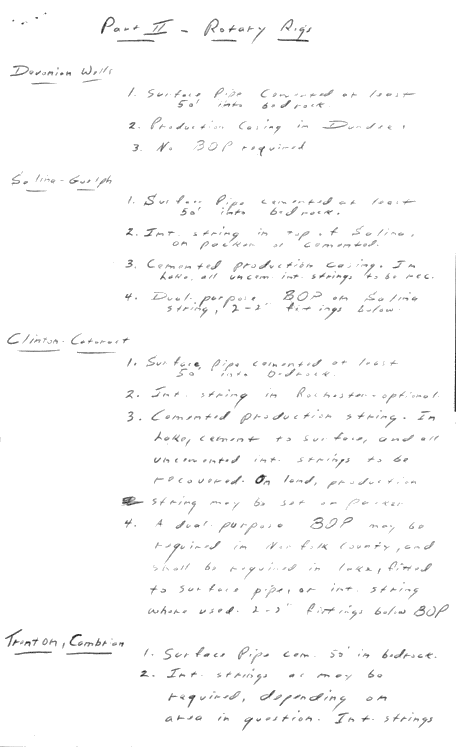 Part II - Rotary Rigs
Devonian Wells
1. Surface Pipe Cemented at least
50' into bedrock
2. Production Casing in Dundee.
3. No BOP required
Salina-Guelph
1. Surface Pipe cemented at least
50' into bedrock.
2. Int. string in top of Salina,
on packer or cemented.
3. Cemented production casing. In
Lake, all uncem. int. strings to be rec.
4. Dual-purpose BOP on Salina
string, 2-2" fittings below.
Clinton-Cataract
1. Surface Pipe cemented at least
50' into bedrock.
2. Int. string in Rochester-optional
3. Cemented production string. In
Lake, cement to surface, and all
uncemented int. strings to be
recovered. On land, production
string may be set on packer
4. A dual-purpose BOP may be
required in Norfolk County, and
shall be required in lake, fitted
to surface pipe, or int. string
where used. 2-2" fittings below BOP
Trenton, Cambrian
1. Surface Pipe cem. 50' in bedrock.
2. Int. strings as may be
required, depending on
area in question. Int. strings